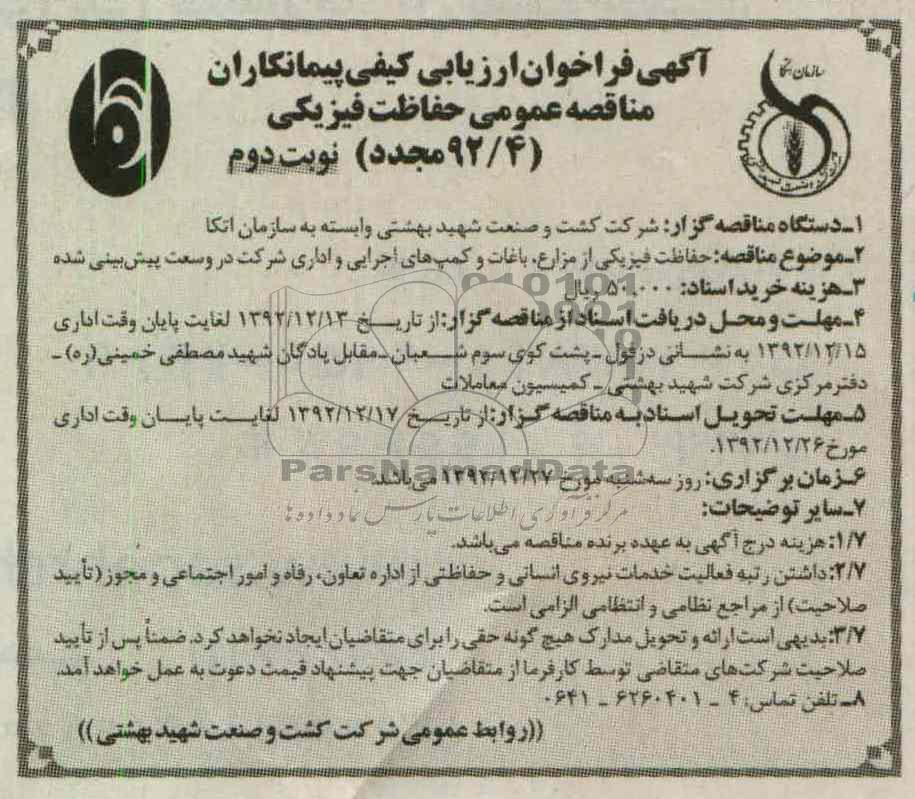 آگهی فراخوان ارزیابی کیفی پیمانکاران
مناقصه عمومی حفاظت فیزیکی
(۹۲/۴ مجدد) نوبت دوم
سازمان اتکا
۱ـ دستگاه مناقصه گزار: شرکت کشت و صنعت شهید بهشتی وابسته به سازمان اتکا
۲ـ موضوع مناقصه: حفاظت فیزیکی از مزارع، باغات و کمپ‌های اجرایی و اداری شرکت در وسعت پیش‌بینی شده
۳ـ هزینه خرید اسناد: ریال
۴ـ مهلت و محل دریافت اسناد از مناقصه گزار: از تاریخ ۱۳۹۲/۱۲/۱۳ لغایت پایان وقت اداری
۱۳۹۲/۱۲/۱۵ به نشانی دزفول ـ پشت کوی سوم شعبان ـ مقابل پادگان شهید مصطفی خمینی(ره) ـ
دفتر مرکزی شرکت شهید بهشتی ـ کمیسیون معاملات
۵ـ مهلت تحویل اسناد به مناقصه گزار: از تاریخ ۱۳۹۲/۱۲/۱۷ لغایت پایان وقت اداری
مورخ ۱۳۹۲/۱۲/۲۶.
۶ـ زمان برگزاری: روز سه‌شنبه مورخ ۱۳۹۲/۱۲/۲۷ می‌باشد.
ParsNamadData
۷ـ سایر توضیحات:
مرکز فرآوری اطلاعات پارس نماد داده ها
۱/۷: هزینه درج آگهی به عهده برنده مناقصه می‌باشد.
۲/۷: داشتن رتبه فعالیت خدمات نیروی انسانی و حفاظتی از اداره تعاون، رفاه و امور اجتماعی و مجوز (تأیید
صلاحیت) از مراجع نظامی و انتظامی الزامی است.
۳/۷: بدیهی است ارائه و تحویل مدارک هیچ گونه حقی را برای متقاضیان ایجاد نخواهد کرد. ضمناً پس از تأیید
صلاحیت شرکت‌های متقاضی توسط کارفرما از متقاضیان جهت پیشنهاد قیمت دعوت به عمل خواهد آمد.
۸ـ تلفن تماس: ۴ ـ ۶۲۶۰۴۰۱ ـ ۰۶۴۱
((روابط عمومی شرکت کشت و صنعت شهید بهشتی))